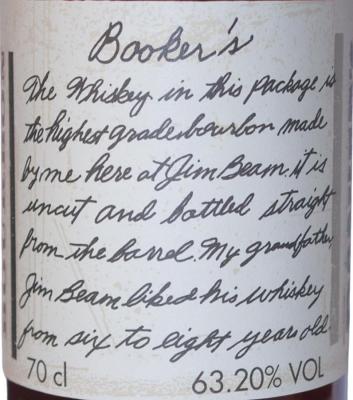 Booker's
The Whiskey in this package is
the highest grade bourbon made
by me here at Jim Beam. it is
uncut and bottled straight
from the barrel. My grandfather,
Jim Beam liked his whiskey
from six to eight years old
70 cl 63.20% VOL